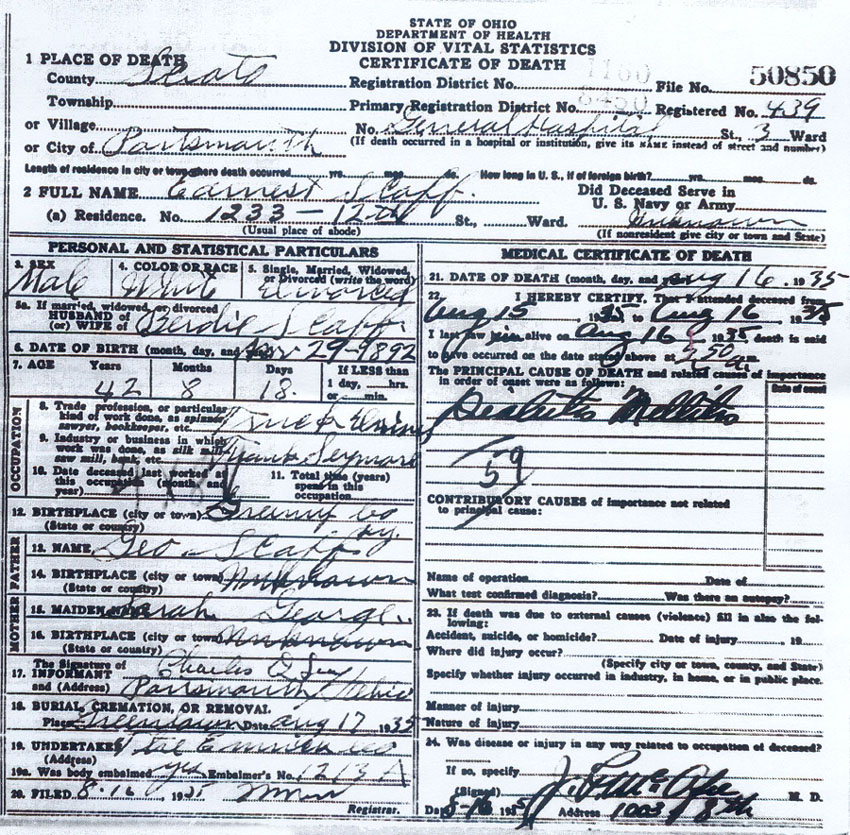 STATE OF OHIO
DEPARTMENT OF HEALTH
DIVISION OF VITAL STATISTICS
CERTIFICATE OF DEATH
1 PLACE OF DEATH
County Scioto
Registration District No. 1160 File No. 50850
Township
Primary Registration District No. 8450 Registered No. 439
or Village
No. General Hospital St., 3 Ward
or City of Portsmouth
(If death occurred in a hospital or institution, give its NAME instead of street and number)
Length of residence in city or town where death occurred yrs. mos. ds. How long in U. S., if of foreign birth? yrs. mos. ds.
2 FULL NAME Earnest Slaff.
Did Deceased Serve in
U. S. Navy or Army Unknown
(a) Residence. No. 1233 - 12th St., Ward.
(Usual place of abode) (If nonresident give city or town and State)
PERSONAL AND STATISTICAL PARTICULARS
3. SEX Male
4. COLOR OR RACE White
5. Single, Married, Widowed, or Divorced (write the word) Divorced
5a. If married, widowed, or divorced
HUSBAND of
(or) WIFE of Berdie Slaff.
6. DATE OF BIRTH (month, day, and 29-1892
7. AGE Years Months Days If LESS than
42 8 18. 1 day, hrs.
or min.
OCCUPATION
8. Trade, profession, or particular
kind of work done, as spinner,
sawyer, bookkeeper, etc. Truck
9. Industry or business in which
work was done, as silk mill,
saw mill, bank, etc. Frank Seymore
10. Date deceased last worked at
this occupation (month and
year)
11. Total time (years)
spent in this
occupation
12. BIRTHPLACE (city or town) Greenup Co
(State or country) Ky.
FATHER
13. NAME Geo Slaff
14. BIRTHPLACE (city or town) Unknown
(State or country)
MOTHER
15. MAIDEN NAME Sarah George.
16. BIRTHPLACE (city or town) Unknown
(State or country)
17. The Signature of
INFORMANT Charles
and (Address) Portsmouth Ohio
18. BURIAL, CREMATION, OR REMOVAL
Place Greenlawn Date Aug 17 1935
19. UNDERTAKER
(Address)
19a. Was body embalmed yes Embalmer's No. 1213 A
20. FILED 8-16 1935
Registrar.
MEDICAL CERTIFICATE OF DEATH
21. DATE OF DEATH (month, day, and Aug 16. 1935
22. I HEREBY CERTIFY, That I attended deceased from
Aug 15 1935 to Aug 16 1935
I last saw him alive on Aug 16 1935, death is said
to have occurred on the date stated above at 5 50 a.m.
The PRINCIPAL CAUSE OF DEATH and related causes of importance
in order of onset were as follows:
Date of onset
Diabetis Mellitis
59
CONTRIBUTORY CAUSES of importance not related
to principal cause:
Name of operation Date of
What test confirmed diagnosis? Was there an autopsy?
23. If death was due to external causes (violence) fill in also the fol-
lowing:
Accident, suicide, or homicide? Date of injury 19
Where did injury occur?
(Specify city or town, county, and State)
Specify whether injury occurred in industry, in home, or in public place.
Manner of injury
Nature of injury
24. Was disease or injury in any way related to occupation of deceased?
If so, specify
(Signed) M. D.
Date 8-16 1935 Address 1003